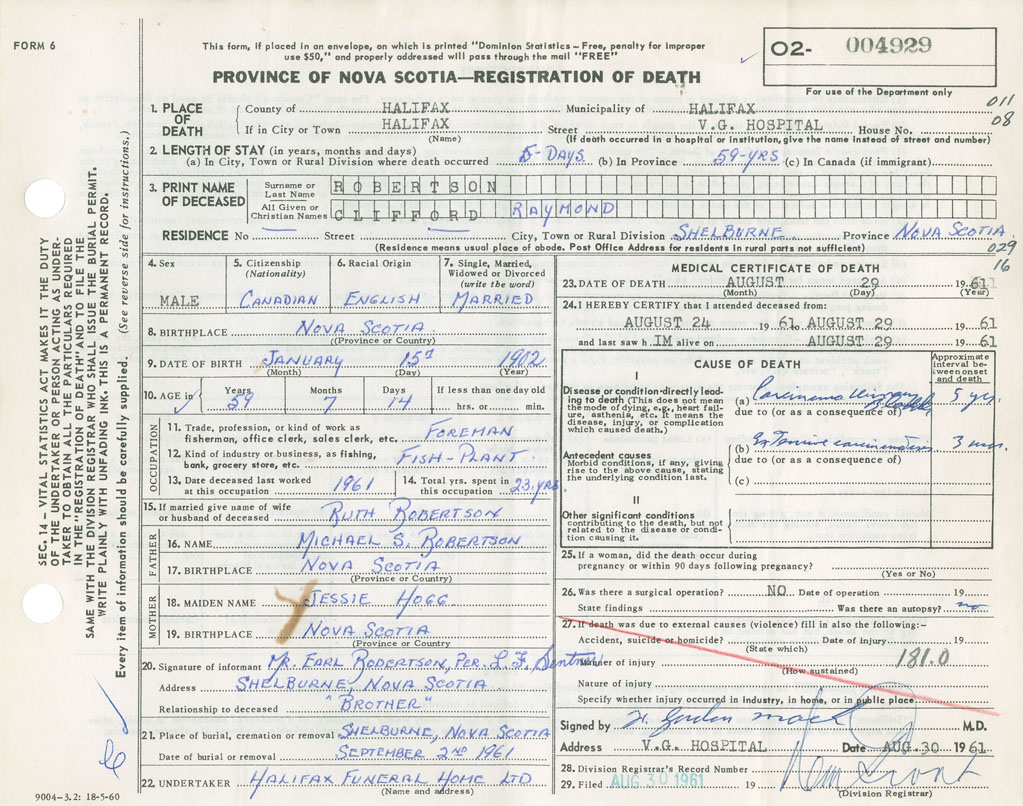 FORM 6
This form, if placed in an envelope, on which is printed "Dominion Statistics – Free, penalty for improper
use $50," and properly addressed will pass through the mail "FREE"
PROVINCE OF NOVA SCOTIA—REGISTRATION OF DEATH
02- 004929
For use of the Department only
011
08
1. PLACE OF DEATH
County of HALIFAX Municipality of HALIFAX
If in City or Town HALIFAX Street V.G. HOSPITAL House No.
(Name) (If death occurred in a hospital or institution, give the name instead of street and number)
2. LENGTH OF STAY (in years, months and days)
(a) In City, Town or Rural Division where death occurred 5-DAYS (b) In Province 59-YRS (c) In Canada (if immigrant)
3. PRINT NAME OF DECEASED
Surname or Last Name ROBERTSON
All Given or Christian Names CLIFFORD RAYMOND
RESIDENCE No Street City, Town or Rural Division SHELBURNE Province NOVA SCOTIA
(Residence means usual place of abode. Post Office Address for residents in rural parts not sufficient)
029
16
4. Sex MALE
5. Citizenship (Nationality) CANADIAN
6. Racial Origin ENGLISH
7. Single, Married, Widowed or Divorced (write the word) MARRIED
8. BIRTHPLACE NOVA SCOTIA
(Province or Country)
9. DATE OF BIRTH JANUARY 15 1902
(Month) (Day) (Year)
10. AGE in Years 59 Months 7 Days 14 If less than one day old hrs. or min.
OCCUPATION
11. Trade, profession, or kind of work as fisherman, office clerk, sales clerk, etc. FOREMAN
12. Kind of industry or business, as fishing, bank, grocery store, etc. FISH-PLANT
13. Date deceased last worked at this occupation 1961
14. Total yrs. spent in this occupation 23-yrs
15. If married give name of wife or husband of deceased RUTH ROBERTSON
FATHER
16. NAME MICHAEL S. ROBERTSON
17. BIRTHPLACE NOVA SCOTIA
(Province or Country)
MOTHER
18. MAIDEN NAME JESSIE HOGG
19. BIRTHPLACE NOVA SCOTIA
(Province or Country
20. Signature of informant MR. EARL ROBERTSON, PER. L. F.
Address SHELBURNE, NOVA SCOTIA
Relationship to deceased "BROTHER"
21. Place of burial, cremation or removal SHELBURNE, NOVA SCOTIA
Date of burial or removal SEPTEMBER 2ND 1961
22. UNDERTAKER HALIFAX FUNERAL HOME LTD
(Name and address)
9004-3.2: 18-5-60
MEDICAL CERTIFICATE OF DEATH
23. DATE OF DEATH AUGUST 29 1961
(Month) (Day) (Year)
24. I HEREBY CERTIFY that I attended deceased from:
AUGUST 24 19 61 to AUGUST 29 19 61
and last saw h IM alive on AUGUST 29 19 61
CAUSE OF DEATH
Approximate interval between onset and death
I
Disease or condition directly leading to death (This does not mean the mode of dying, e.g., heart failure, asthenia, etc. It means the disease, injury, or complication which caused death.)
(a) Carcinoma urinary bladder 5 yrs.
due to (or as a consequence of)
Antecedent causes
Morbid conditions, if any, giving rise to the above cause, stating the underlying condition last.
(b) 3 mos.
due to (or as a consequence of)
(c)
II
Other significant conditions
contributing to the death, but not related to the disease or condition causing it.
25. If a woman, did the death occur during pregnancy or within 90 days following pregnancy?
(Yes or No)
26. Was there a surgical operation? NO Date of operation 19
State findings Was there an autopsy? no
27. If death was due to external causes (violence) fill in also the following:-
Accident, suicide or homicide? Date of injury 19
(State which)
Manner of injury 181.0
(How sustained)
Nature of injury
Specify whether injury occurred in industry, in home, or in public place
Signed by H. Gordon Mack M.D.
Address V.G. HOSPITAL Date AUG. 30 1961
28. Division Registrar's Record Number
29. Filed AUG 30 1961 19
(Division Registrar)
SEC. 14 – VITAL STATISTICS ACT MAKES IT THE DUTY
OF THE UNDERTAKER OR PERSON ACTING AS UNDER-
TAKER TO OBTAIN ALL THE PARTICULARS REQUIRED
IN THE "REGISTRATION OF DEATH" AND TO FILE THE
SAME WITH THE DIVISION REGISTRAR WHO SHALL ISSUE THE BURIAL PERMIT.
WRITE PLAINLY WITH UNFADING INK. THIS IS A PERMANENT RECORD.
Every item of information should be carefully supplied. (See reverse side for instructions.)